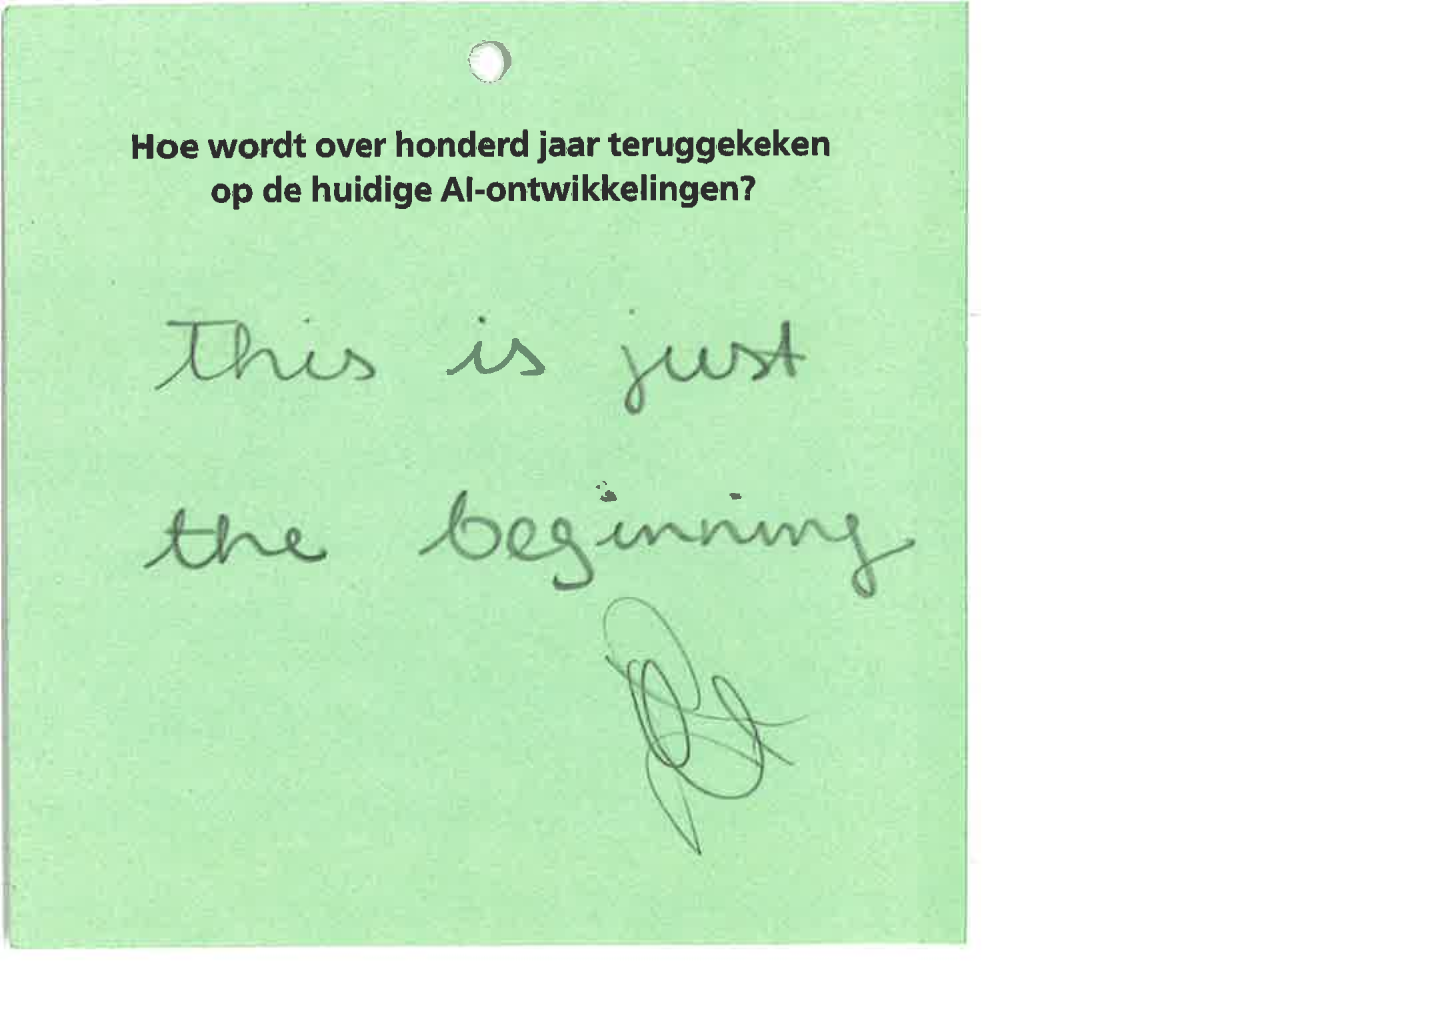 Hoe wordt over honderd jaar teruggekeken
op de huidige AI-ontwikkelingen?
This is just
the beginning